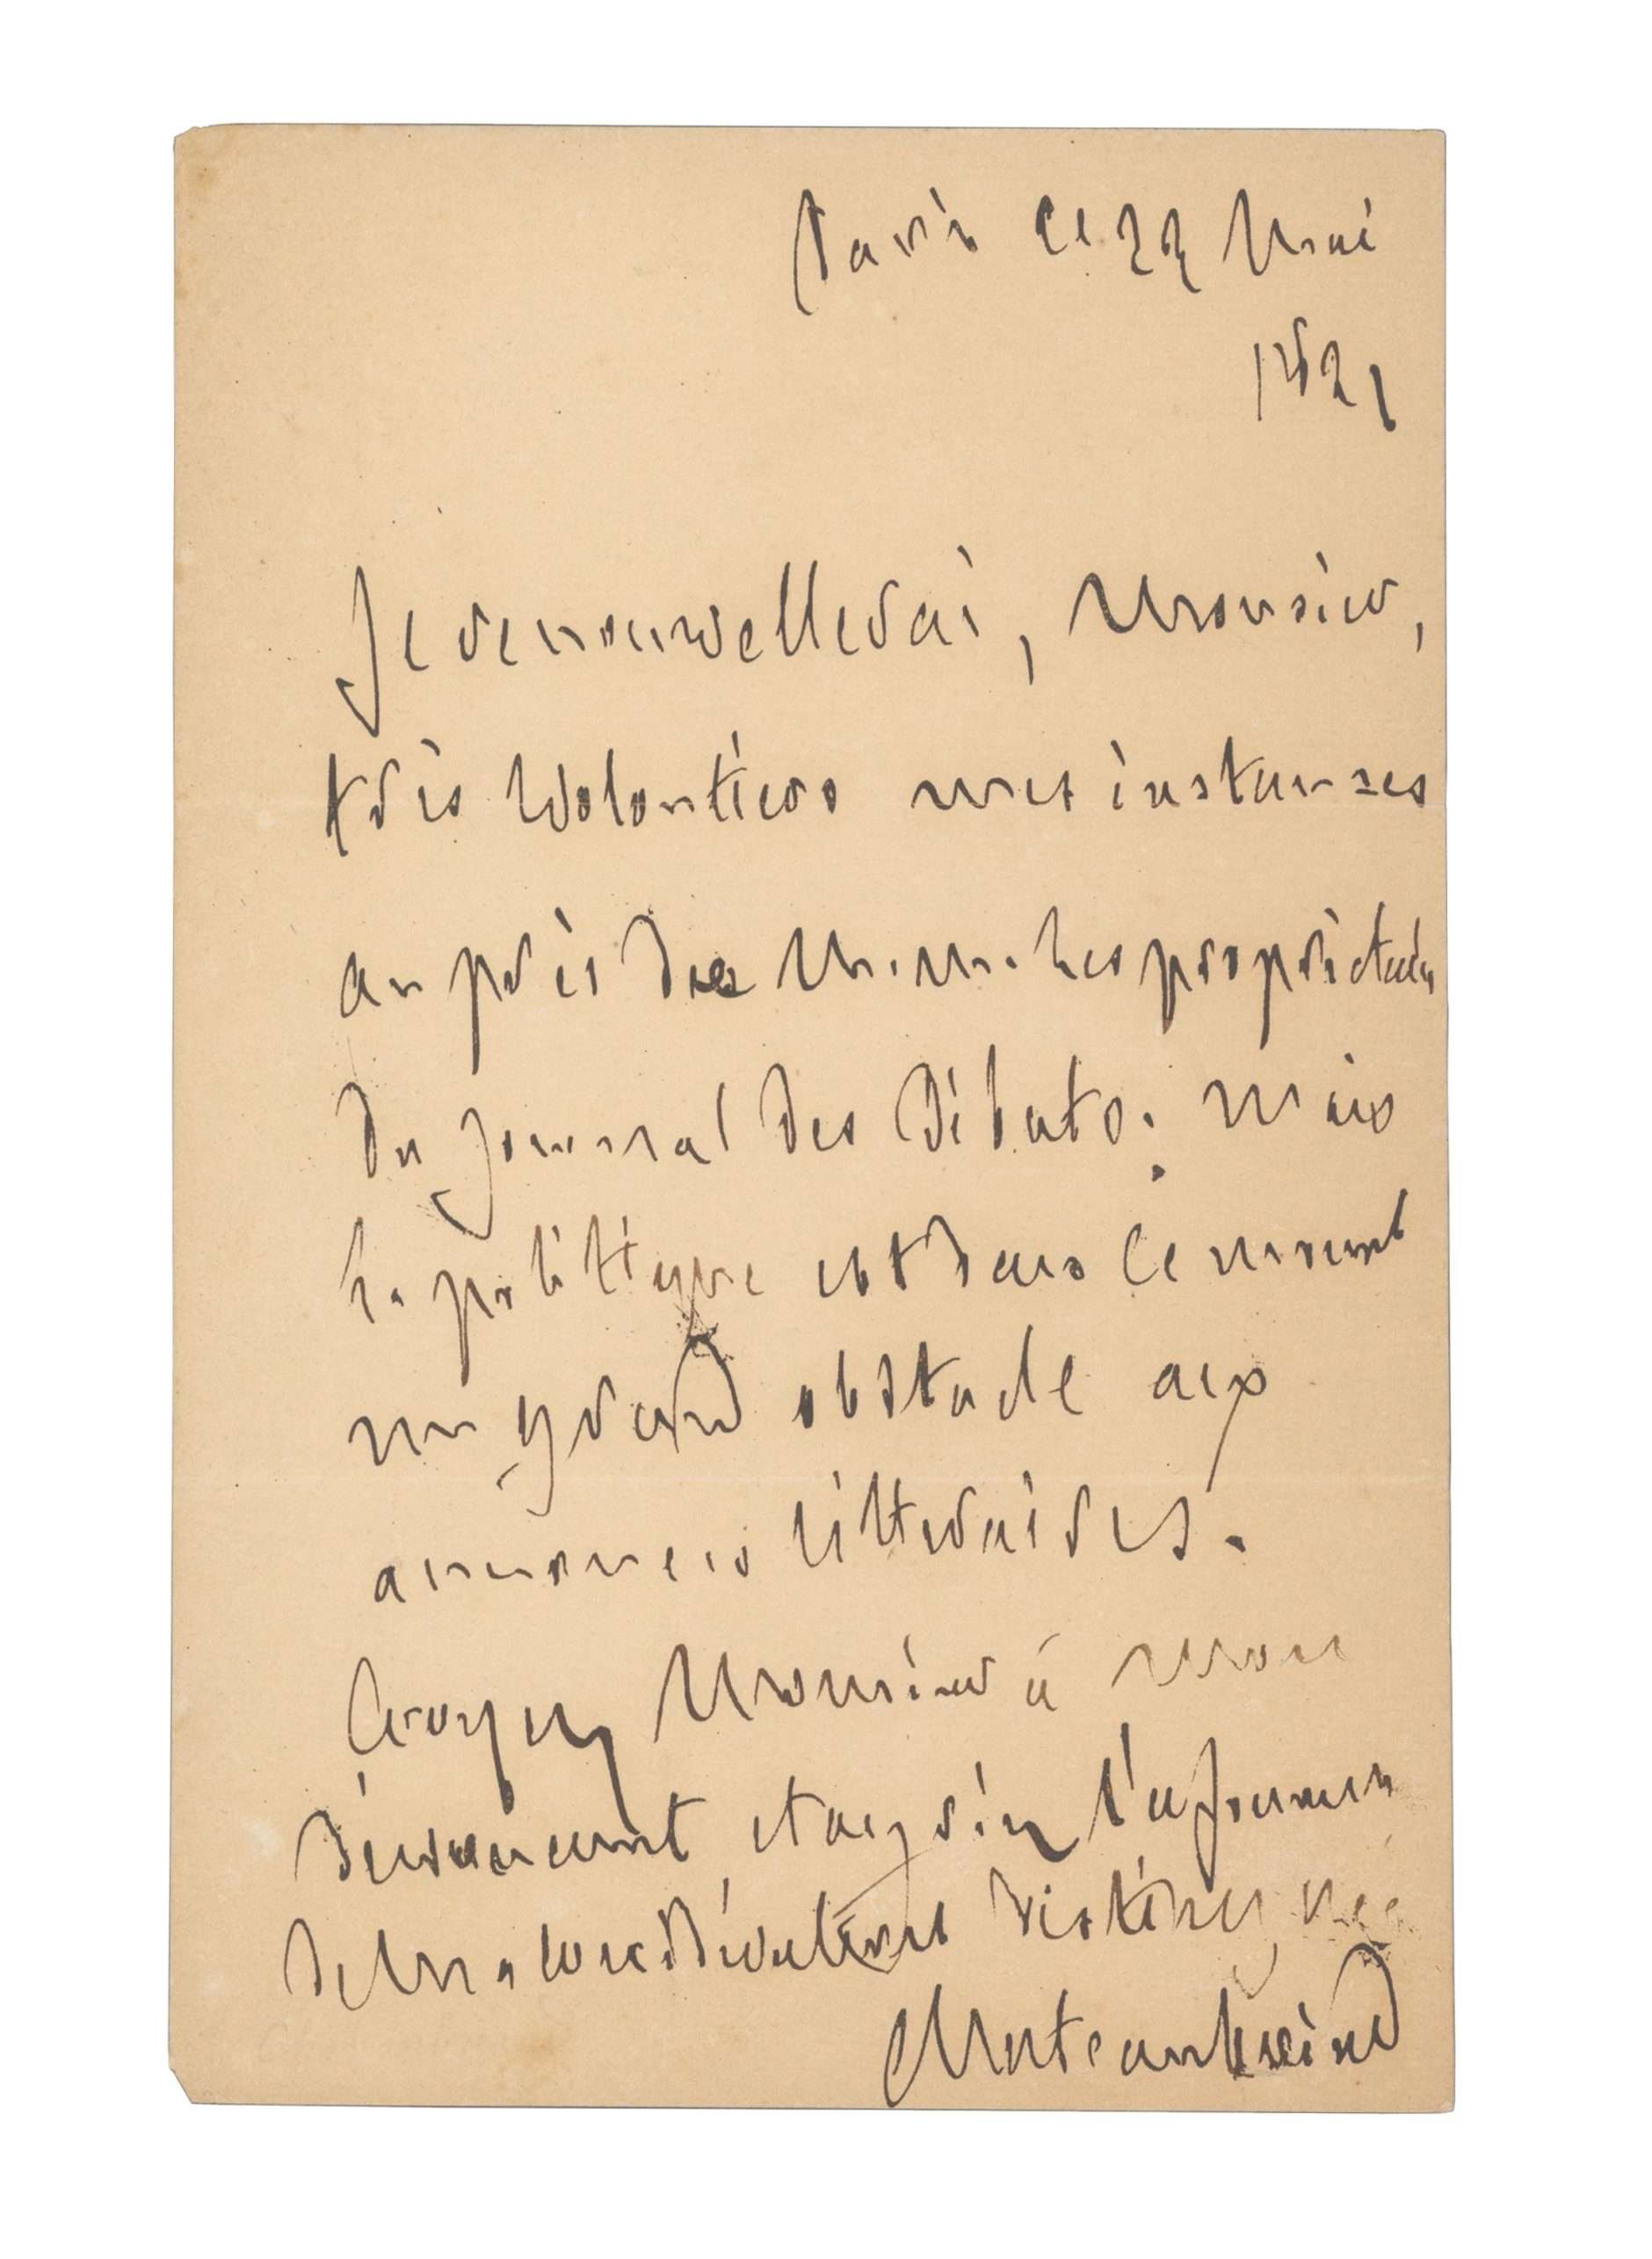 Paris ce 22 Mai
1821
Je renouvellerai, Monsieur,
très volontiers mes instances
auprès de M.M. les propriétaires
du journal des Débats; mais
la politique est dans ce moment
un grand obstacle aux
annonces littéraires.
Croyez Monsieur à mon
dévouement, et agréez l'
de ma considération distinguée
Chateaubriand